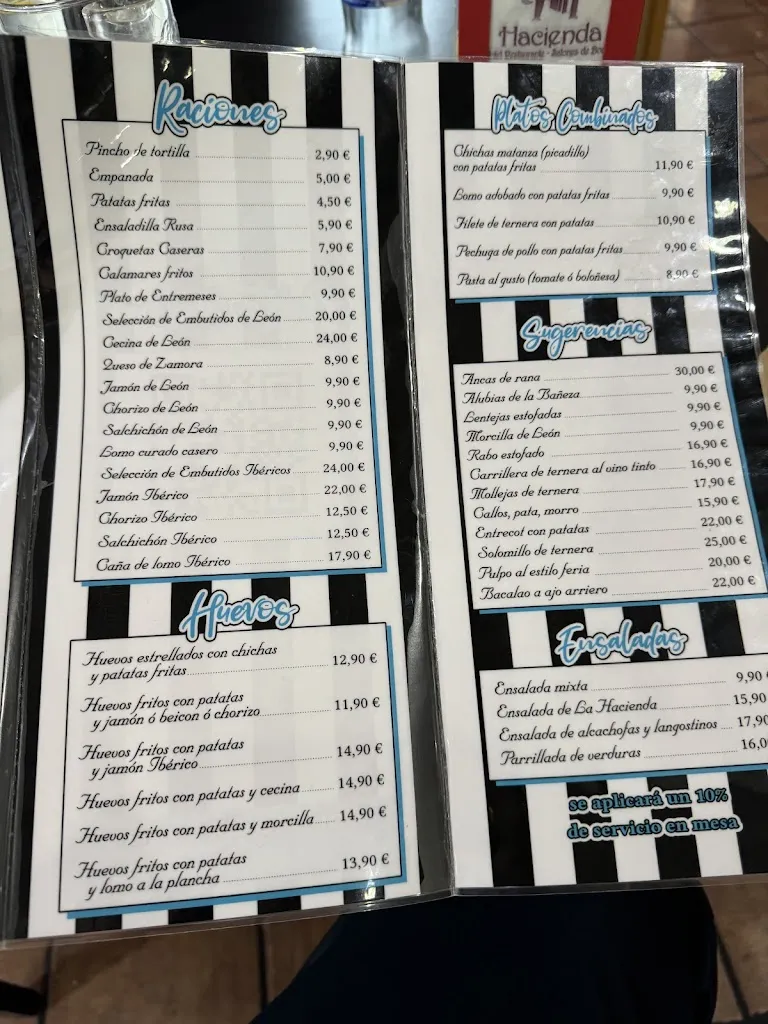 Hacienda
Raciones
Pincho de tortilla 2,90 €
Empanada 5,00 €
Patatas fritas 4,50 €
Ensaladilla Rusa 5,90 €
Croquetas Caseras 7,90 €
Calamares fritos 10,90 €
Plato de Entremeses 9,90 €
Selección de Embutidos de León 20,00 €
Cecina de León 24,00 €
Queso de Zamora 8,90 €
Jamón de León 9,90 €
Chorizo de León 9,90 €
Salchichón de León 9,90 €
Lomo curado casero 9,90 €
Selección de Embutidos Ibéricos 24,00 €
Jamón Ibérico 22,00 €
Chorizo Ibérico 12,50 €
Salchichón Ibérico 12,50 €
Caña de lomo Ibérico 17,90 €
Huevos
Huevos estrellados con chichas
y patatas fritas 12,90 €
Huevos fritos con patatas
y jamón ó beicon ó chorizo 11,90 €
Huevos fritos con patatas
y jamón Ibérico 14,90 €
Huevos fritos con patatas y cecina 14,90 €
Huevos fritos con patatas y morcilla 14,90 €
Huevos fritos con patatas
y lomo a la plancha 13,90 €
Platos Combinados
Chichas matanza (picadillo)
con patatas fritas 11,90 €
Lomo adobado con patatas fritas 9,90 €
Filete de ternera con patatas 10,90 €
Pechuga de pollo con patatas fritas 9,90 €
Pasta al gusto (tomate ó boloñesa) 8,90 €
Sugerencias
Ancas de rana 30,00 €
Alubias de la Bañeza 9,90 €
Lentejas estofadas 9,90 €
Morcilla de León 9,90 €
Rabo estofado 16,90 €
Carrillera de ternera al vino tinto 16,90 €
Mollejas de ternera 17,90 €
Callos, pata, morro 15,90 €
Entrecot con patatas 22,00 €
Solomillo de ternera 25,00 €
Pulpo al estilo feria 20,00 €
Bacalao a ajo arriero 22,00 €
Ensaladas
Ensalada mixta 9,90
Ensalada de La Hacienda 15,90
Ensalada de alcachofas y langostinos 17,90
Parrillada de verduras 16,0
se aplicará un 10%
de servicio en mesa